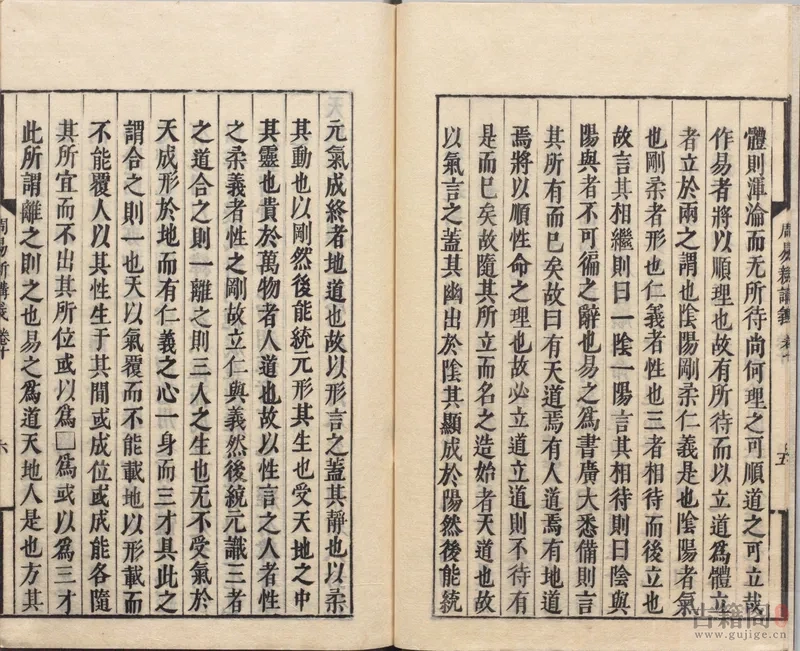 體則渾淪而无所待尚何理之可順道之可立哉
作易者將以順理也故有所待而以立道爲體立
者立於兩之謂也陰陽剛柔仁義是也陰陽者氣
也剛柔者形也仁義者性也三者相待而後立也
故言其相繼則曰一陰一陽言其相待則曰陰與
陽與者不可徧之辭也易之爲書廣大悉備則言
其所有而已矣故曰有天道焉有人道焉有地道
焉將以順性命之理也故必立道立道則不待有
是而已矣故隨其所立而名之造始者天道也故
以氣言之蓋其幽出於陰其顯成於陽然後能統
周易新講義 卷十
五
元氣成終者地道也故以形言之蓋其靜也以柔
其動也以剛然後能統元形其生也受天地之中
其靈也貴於萬物者人道也故以性言之人者性
之柔義者性之剛故立仁與義然後統元識三者
之道合之則一離之則三人之生也无不受氣於
天成形於地而有仁義之心一身而三才具此之
謂合之則一也天以氣覆而不能載地以形載而
不能覆人以其性生于其間或成位或成能各隨
其所宜而不出其所位或以爲□爲或以爲三才
此所謂離之則之也易之爲道天地人是也方其
周易新講義 卷十
六
古籍阁
www.gujige.cn